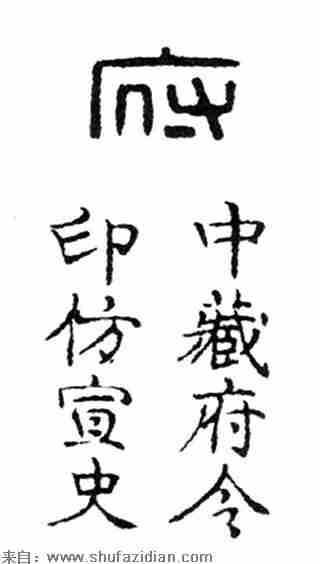 府
中藏府令
印仿宣史
来自：www.shufazidian.com